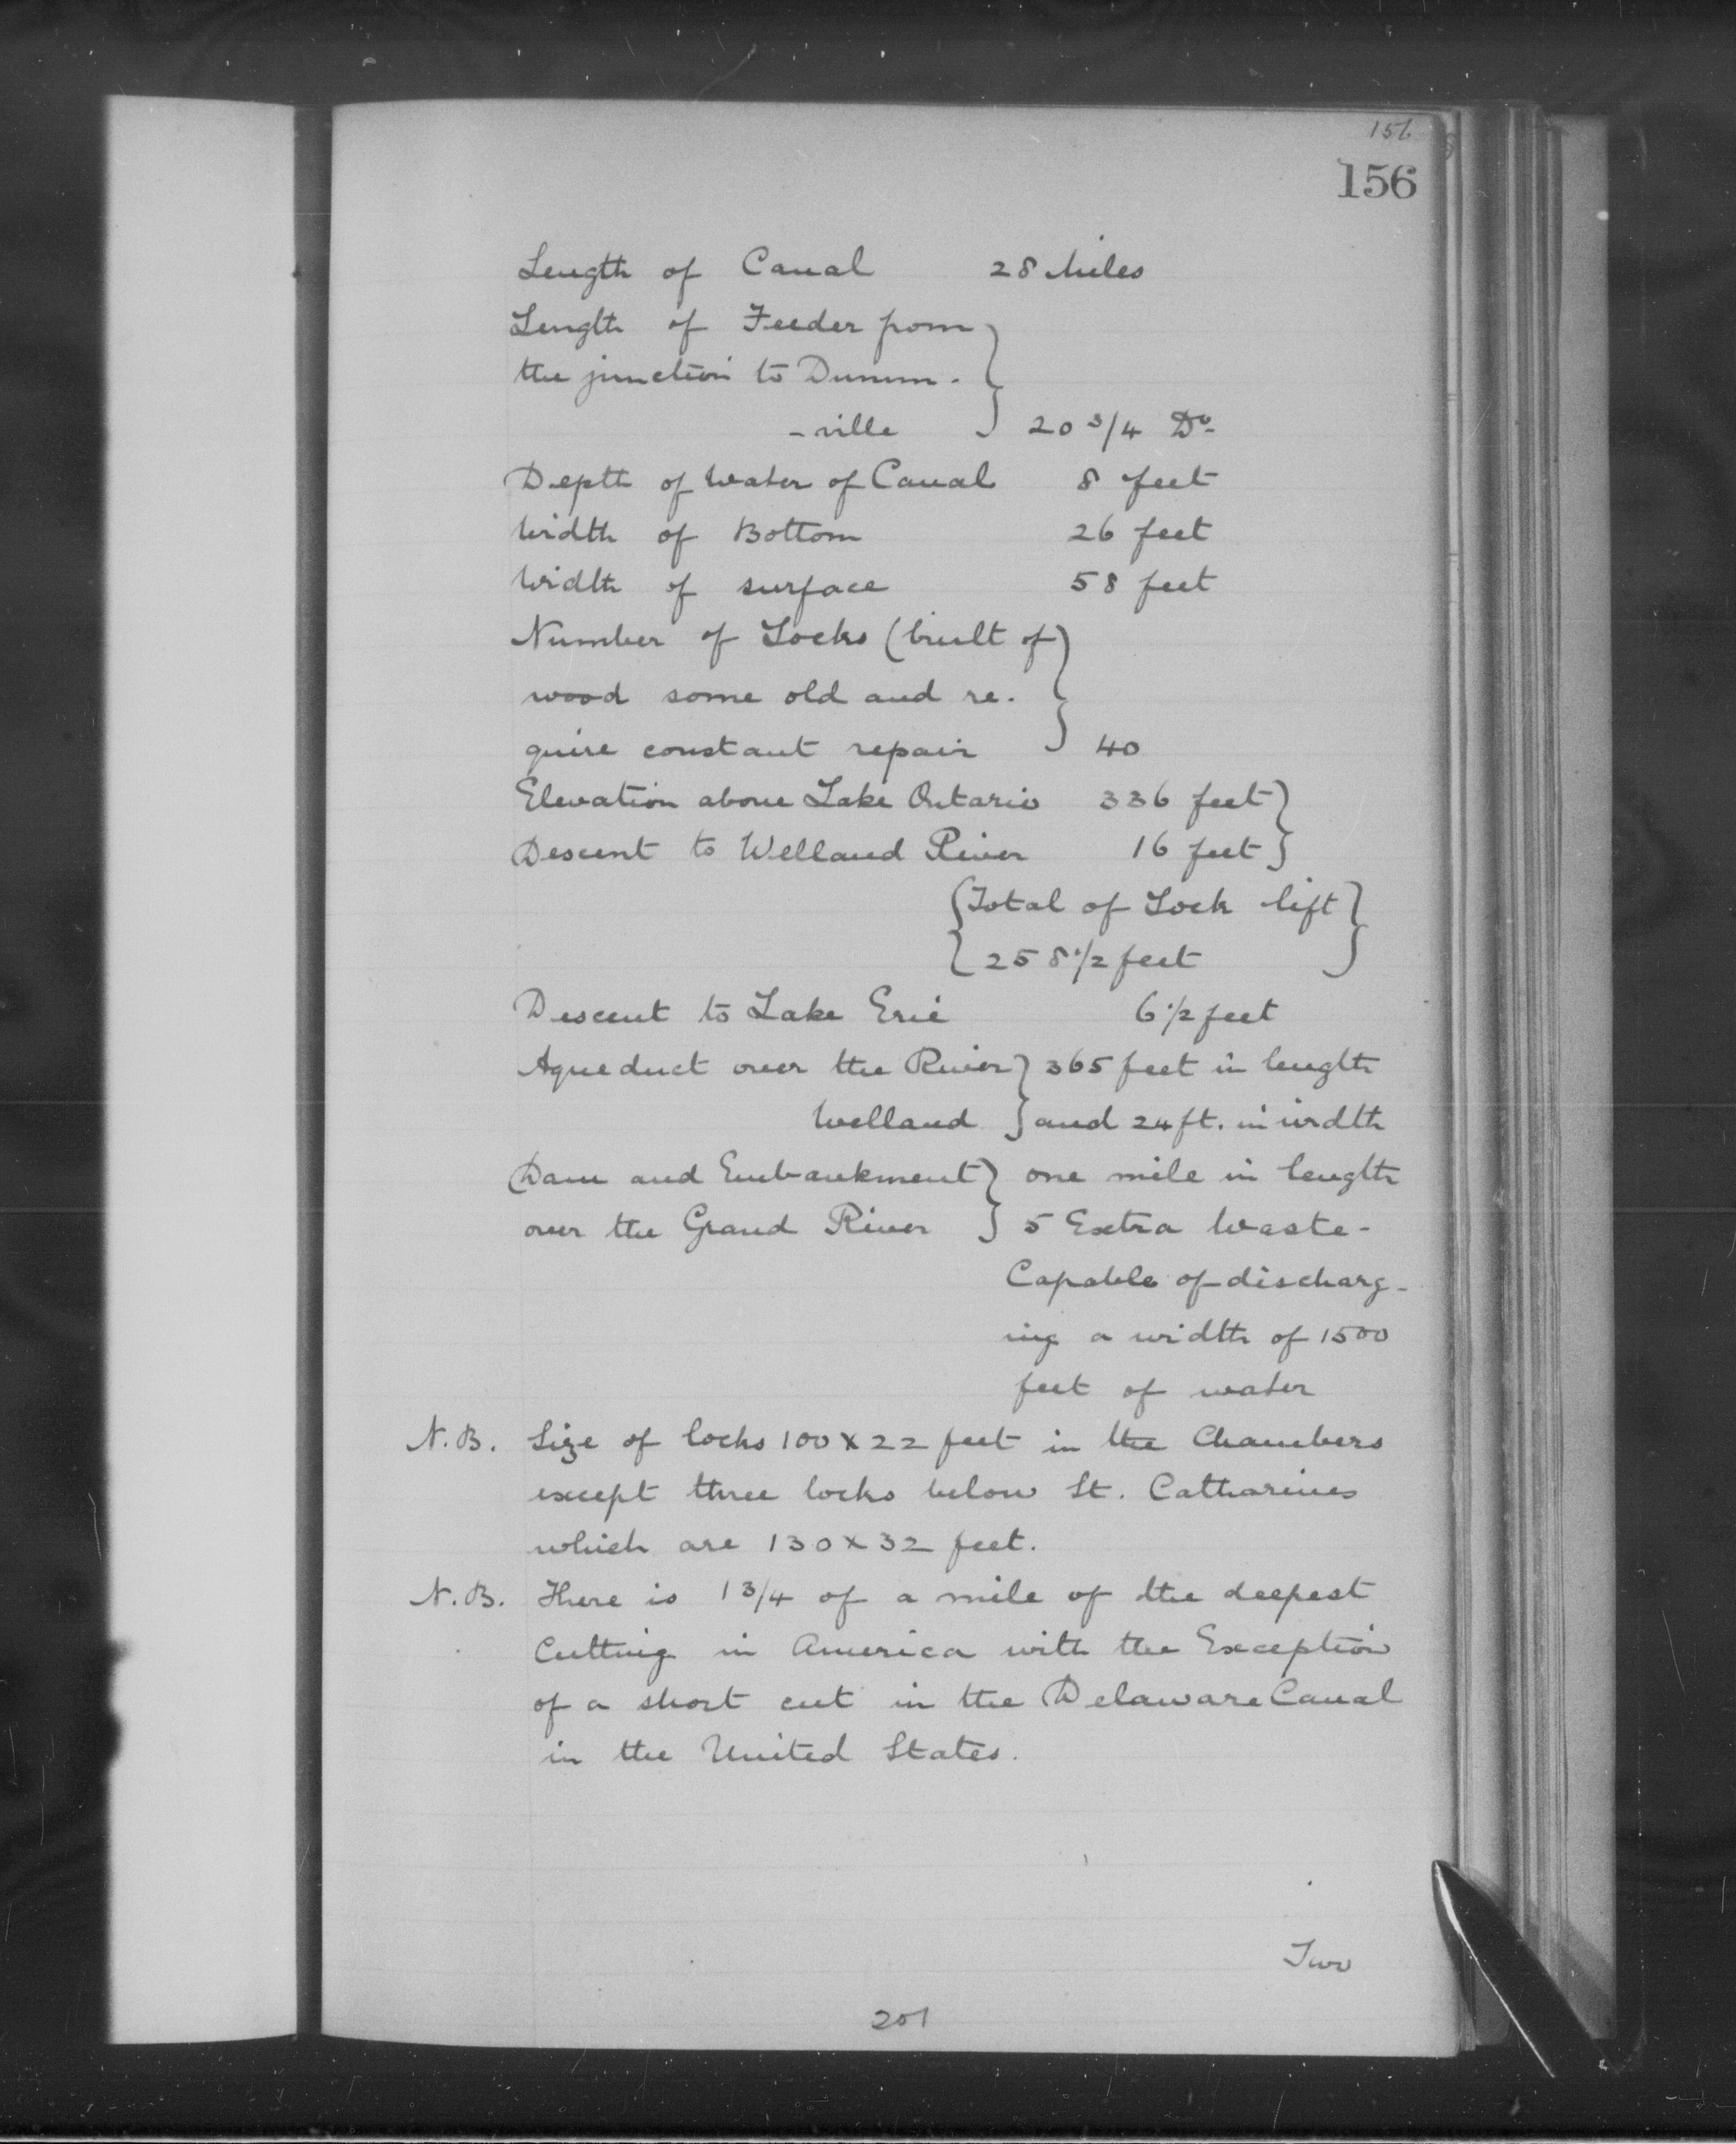 156
156
Length of Canal 28 Miles
Length of Feeder from
the junction to Dunnn-
-ville } 20 3/4 Do.
Depth of Water of Canal 8 feet
Width of Bottom 26 feet
Width of surface 58 feet
Number of Locks (built of
wood some old and re-
quire constant repair } 40
Elevation above Lake Ontario 336 feet }
Descent to Welland River 16 feet }
{ Total of Lock lift }
{ 258 1/2 feet }
Descent to Lake Erie 6 1/2 feet
Aqueduct over the River } 365 feet in length
Welland } and 24 ft. in width
Dam and Embankment } one mile in length
over the Grand River } 5 Extra Waste-
Capable of discharg-
ing a width of 1500
feet of water
N.B. Size of locks 100 x 22 feet in the Chambers
except three locks below St. Catharines
which are 130 x 32 feet.
N.B. There is 1 3/4 of a mile of the deepest
Cutting in America with the Exception
of a short cut in the Delaware Canal
in the United States.
Two
201